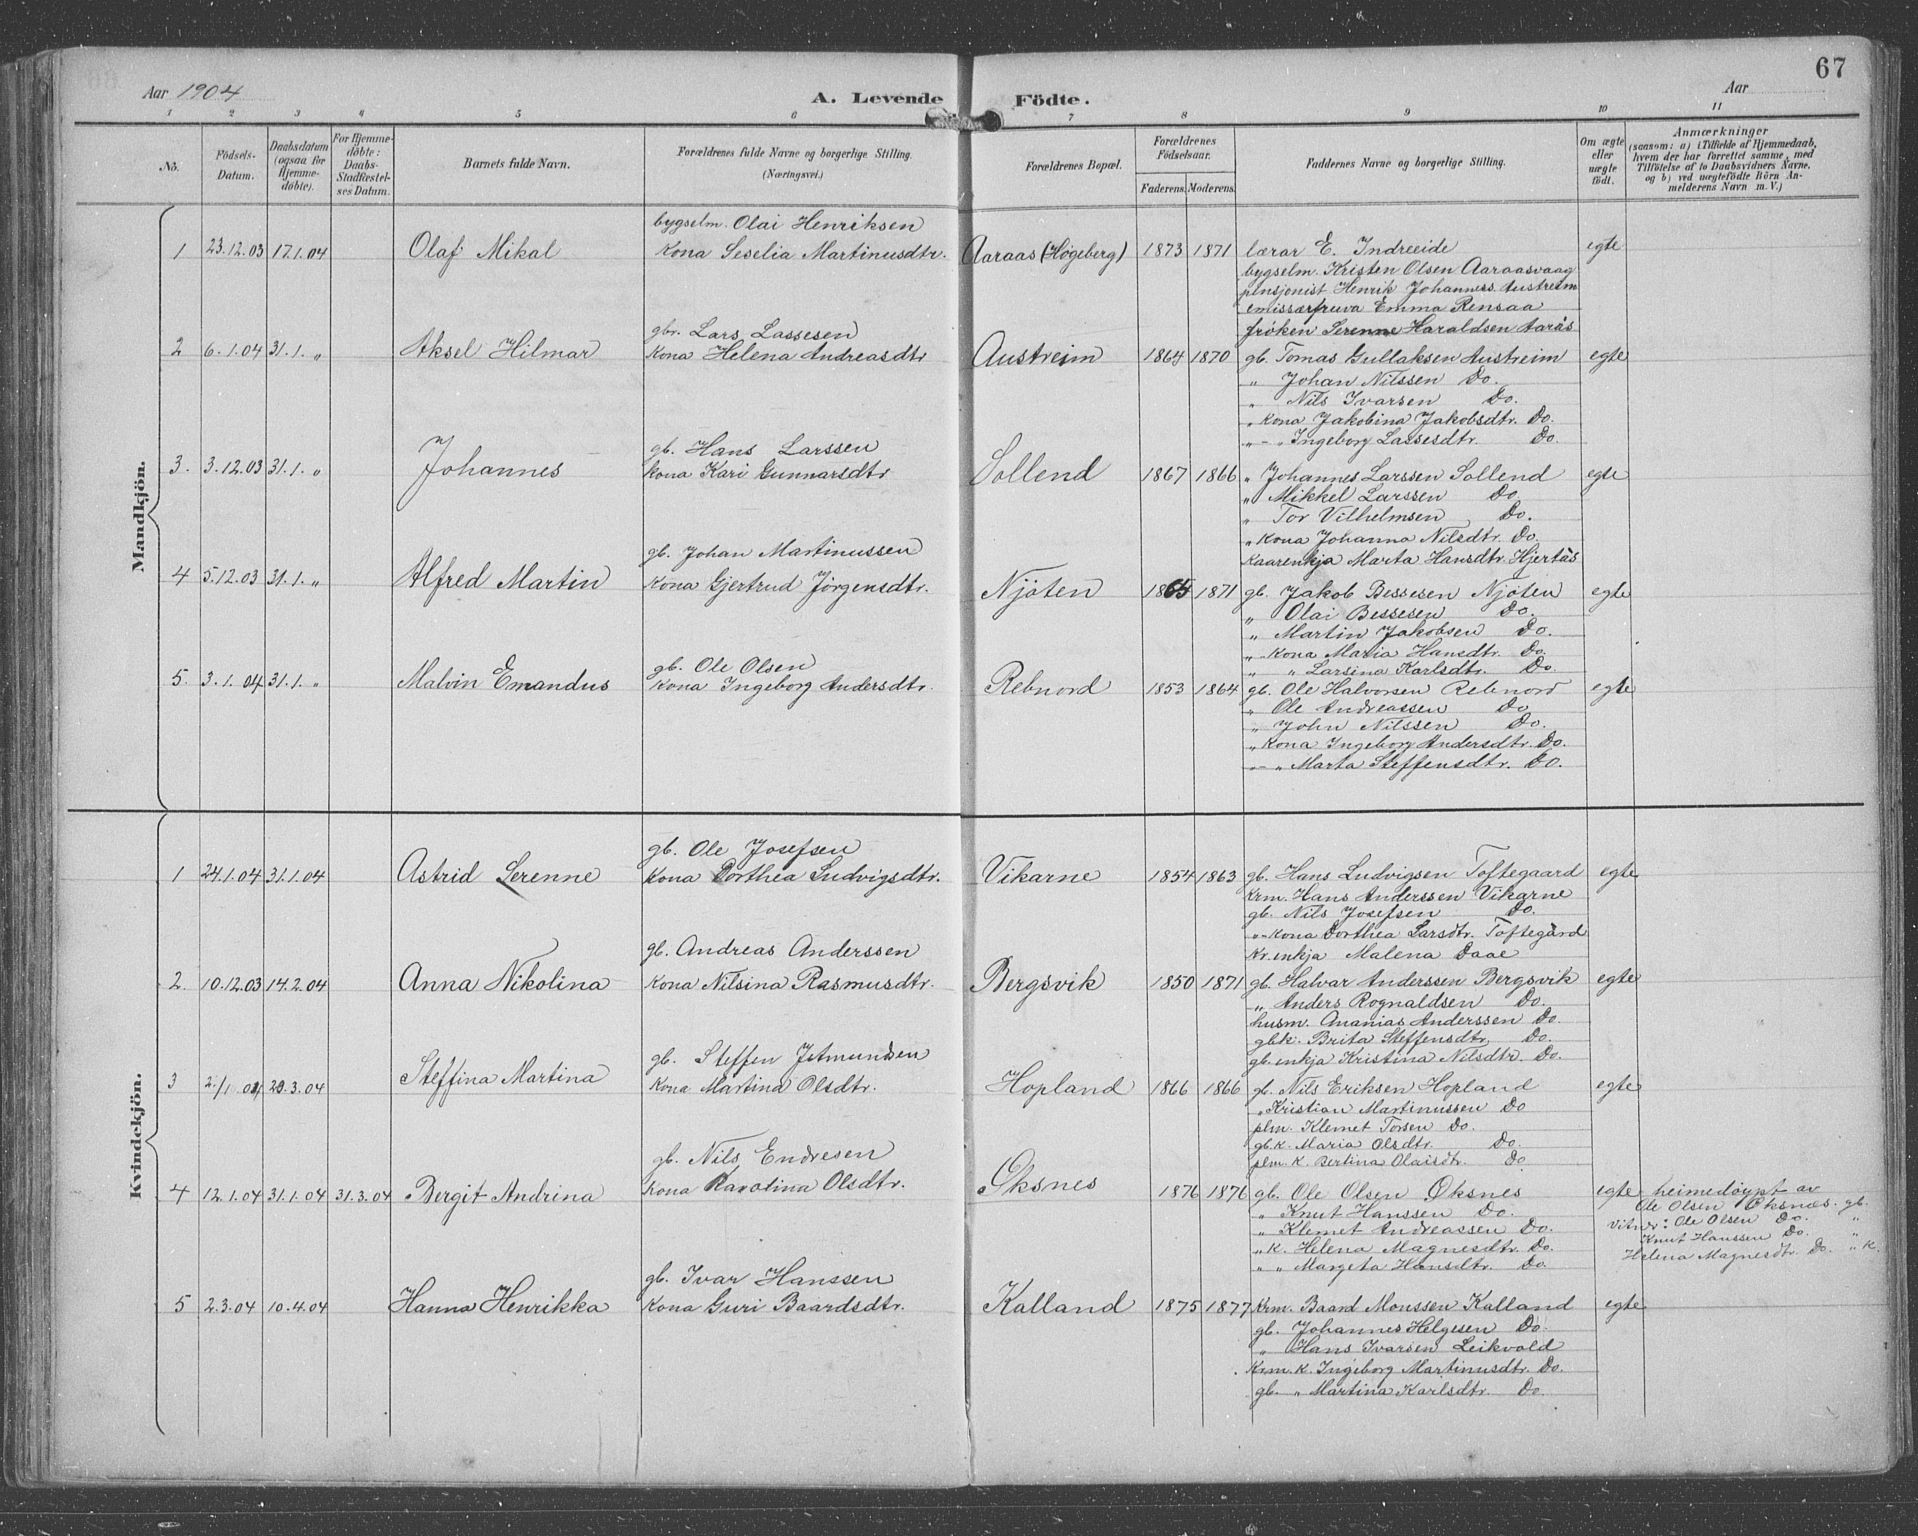 67
Aar 1904
A. Levende Födte.
Aar
1 2 3 4 5 6 7 8 9 10 11
No.
Födsels-Datum.
Daabsdatum (ogsaa for Hjemme-döbte).
For Hjemme-döbte: Daabs-Stadfæstel-ses Datum.
Barnets fulde Navn.
Forældrenes fulde Navne og borgerlige Stilling.
(Næringsvei.)
Forældrenes Bopæl.
Forældrenes Födselsaar.
Faderens. Moderens.
Faddernes Navne og borgerlige Stilling.
Om ægte eller uægte födt.
Anmærkninger
(saasom: a) i Tilfælde af Hjemmedaab, hvem der har forrettet samme, med Tilföielse af to Daabsvidners Navne, og b) ved uægtefödte Börn An-melderens Navn m. V.)
Mandkjön.
bygselm. Olai Henriksen
1 23.12.03 17.1.04 Olaf Mikal Kona Seselia Martinusdtr. Aaraas (Høgeberg) 1873 1871 lærar E. Indreeide egte
bygselm. Kristen Olsen Aaraasvaag
pensjonist Henrik Johanness. Austreim
emissærfruva Emma Rensaa
frøken Serenne Haraldsen Aarås
gbr. Lars Lassesen
2 6.1.04 31.1. " Aksel Hilmar Kona Helena Andreasdtr Austreim 1864 1870 gb. Tomas Gullaksen Austreim egte
" Johan Nilssen Do.
" Nils Ivarsen Do.
" Kona Jakobina Jakobsdtr. Do.
" - " Ingeborg Lassesdtr. Do.
gb. Hans Larssen
3. 3.12.03 31.1. " Johannes Kona Kari Gunnarsdtr Sollend 1867 1866 " Johannes Larssen Sollend egte
" Mikkel Larssen Do
" Tor Vilhelmsen Do.
" Kona Johanna Nilsdtr. Do.
Kaarenkja Marta Hansdtr. Hjertås
gb. Johan Martinussen
4 5.12.03 31.1. " Alfred Martin Kona Gjertrud Jørgensdtr. Njøten 1865 1871 gb. Jakob Bessesen Njøten egte
" Olai Bessesen Do.
" Martin Jakobsen Do.
" Kona Maria Hansdtr. Do.
" " Larsina Karlsdtr. Do.
gb. Ole Olsen
5. 3.1.04 31.1. " Malvin Emandus Kona Ingeborg Andersdtr. Rebnord 1853 1864 gb. Ole Halvorsen Rebnord egte
" Ole Andreassen Do
" John Nilssen Do.
" Kona Ingeborg Andersdtr. Do.
- " Marta Steffensdtr. Do.
Kvindekjön.
gb. Ole Josefsen
1 24.1.04 31.1.04 Astrid Serenne Kona Dorthea Ludvigsdtr. Vikarne 1854 1863 gb. Hans Ludvigsen Toftegaard egte
Krm. Hans Anderssen Vikarne
gb. Nils Josefsen Do.
" Kona Dorthea Larsdtr. Toftegård
Kr. enkja Malena Daae
gb. Andreas Anderssen
2. 10.12.03 14.2.04 Anna Nikolina Kona Nilsina Rasmusdtr. Bergsvik 1850 1871 gb. Halvar Anderssen Bergsvik egte
" Anders Rognaldsen Do.
husm. Ananias Anderssen Do.
gbk. Brita Steffensdtr. Do.
gb. enkja Kristina Nilsdtr. Do.
gb. Steffen Jetmundsen
3 2/1 04 20.3.04 Steffina Martina Kona Martina Olsdtr. Hopland 1866 1866 gb. Nils Eriksen Hopland egte
" Kristian Martinussen Do
plm. Klemet Torsen Do.
gb k. Maria Olsdtr. Do.
plm. K. Bertina Olaisdtr. Do
gb. Nils Endresen
4 12.1.04 31.1.04 31.3.04 Bergit Andrina Kona Karolina Olsdtr. Øksnes 1876 1876 gb. Ole Olsen Øksnes egte heimedøypt av
Ole Olsen Øksnæs. gb.
" Knut Hanssen Do. Vitner: Ole Olsen Do. "
" Klemet Andreassen Do. Knut Hanssen Do. "
" K. Helena Magnesdtr. Do. Helena Magnesdtr. Do. " K.
" " Margeta Hansdtr. Do
gb. Ivar Hanssen
5 2.3.04 10.4.04 Hanna Henrikka Kona Guri Baardsdtr. Kalland 1875 1877 Krm. Baard Monssen Kalland egte
gb. Johannes Helgesen Do.
" Hans Ivarsen Leikvold
Krm. K. Ingeborg Martinusdtr. Do.
gb. " Martina Karlsdtr. Do.